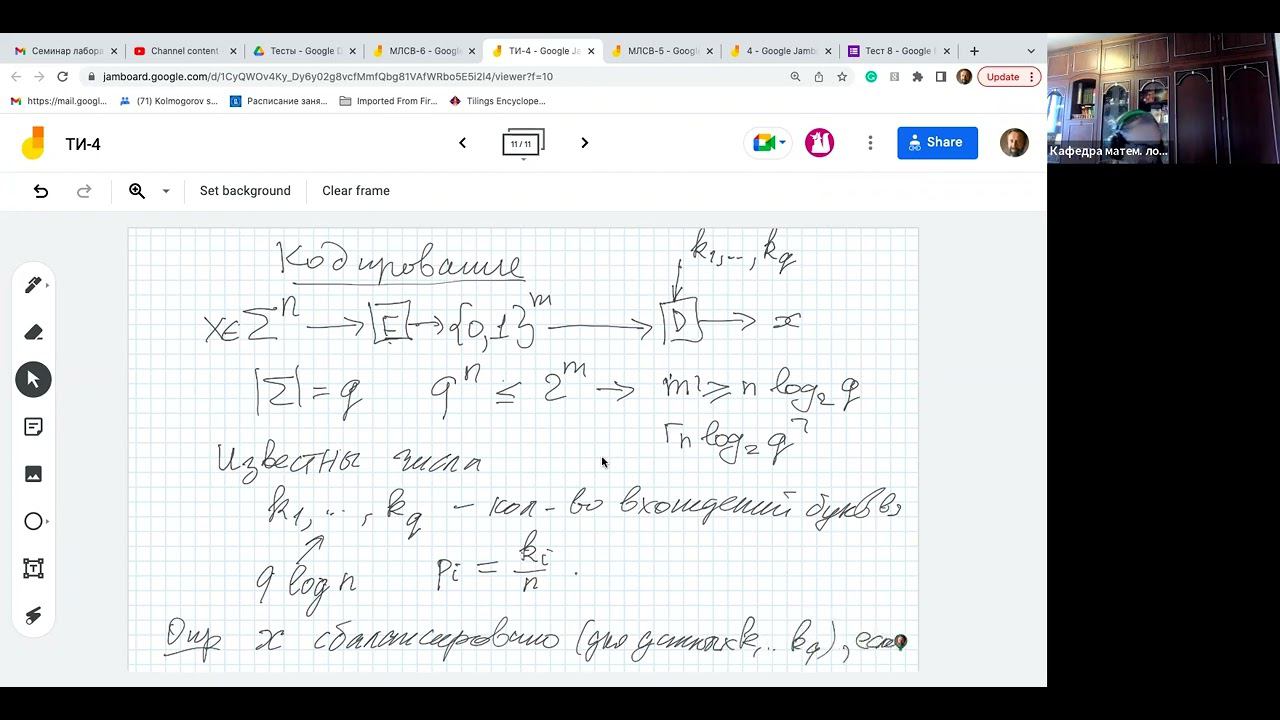 Семинар лабора
Channel content
Тесты - Google D
МЛСВ-6 - Google
ТИ-4 - Google Ja
МЛСВ-5 - Google
4 - Google Jambo
Тест 8 - Google
jamboard.google.com/d/1CyQWOv4Ky_Dy6y02g8vcfMmfQbg81VAfWRbo5E5i2I4/viewer?f=10
Update
https://mail.googl...
(71) Kolmogorov s...
Расписание заня...
Imported From Fir...
Tilings Encyclope...
Кафедра матем. ло...
ТИ-4
11 / 11
Share
Set background
Clear frame
Кодирование
k₁,..., k_q
x∈Σⁿ → E → {0,1}ᵐ → D → x
|Σ| = q qⁿ ≤ 2ᵐ → m ≥ n log₂ q
⌈n log₂ q⌉
Известны числа
k₁, ..., k_q – кол-во вхождений букв,
q log n p_i = k_i / n .
Опр x сбалансировано (для данных k₁..k_q), если